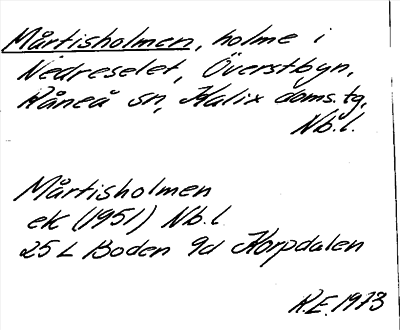 Mårtisholmen, holme i
Nedreselet, Överstbyn,
Råneå sn, Kalix doms.tg,
Nb.l.
Mårtisholmen
ek (1951) Nb.l
25 L Boden 9d Korpdalen
R.E. 1973